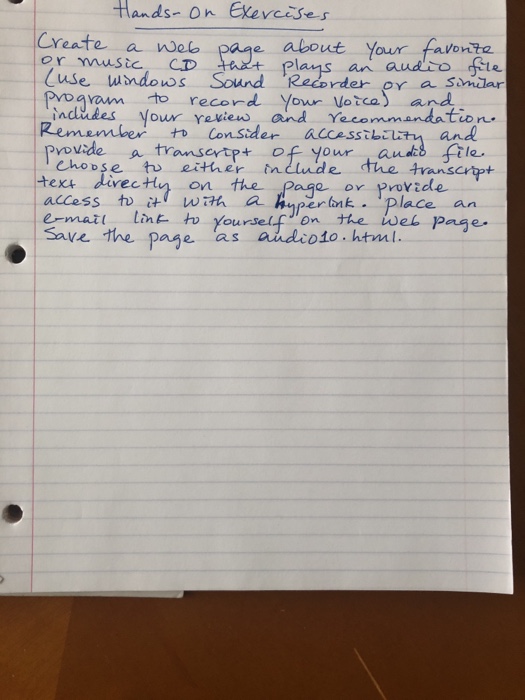 Hands-On Exercises
Create a web page about your favorite
or music CD that plays an audio file
(use windows Sound Recorder or a similar
program to record your voice) and
includes your review and recommendation.
Remember to consider accessibility and
provide a transcript of your audio file.
Choose to either include the transcript
text directly on the page or provide
access to it with a hyperlink. Place an
e-mail link to yourself on the web page.
Save the page as audio10.html.